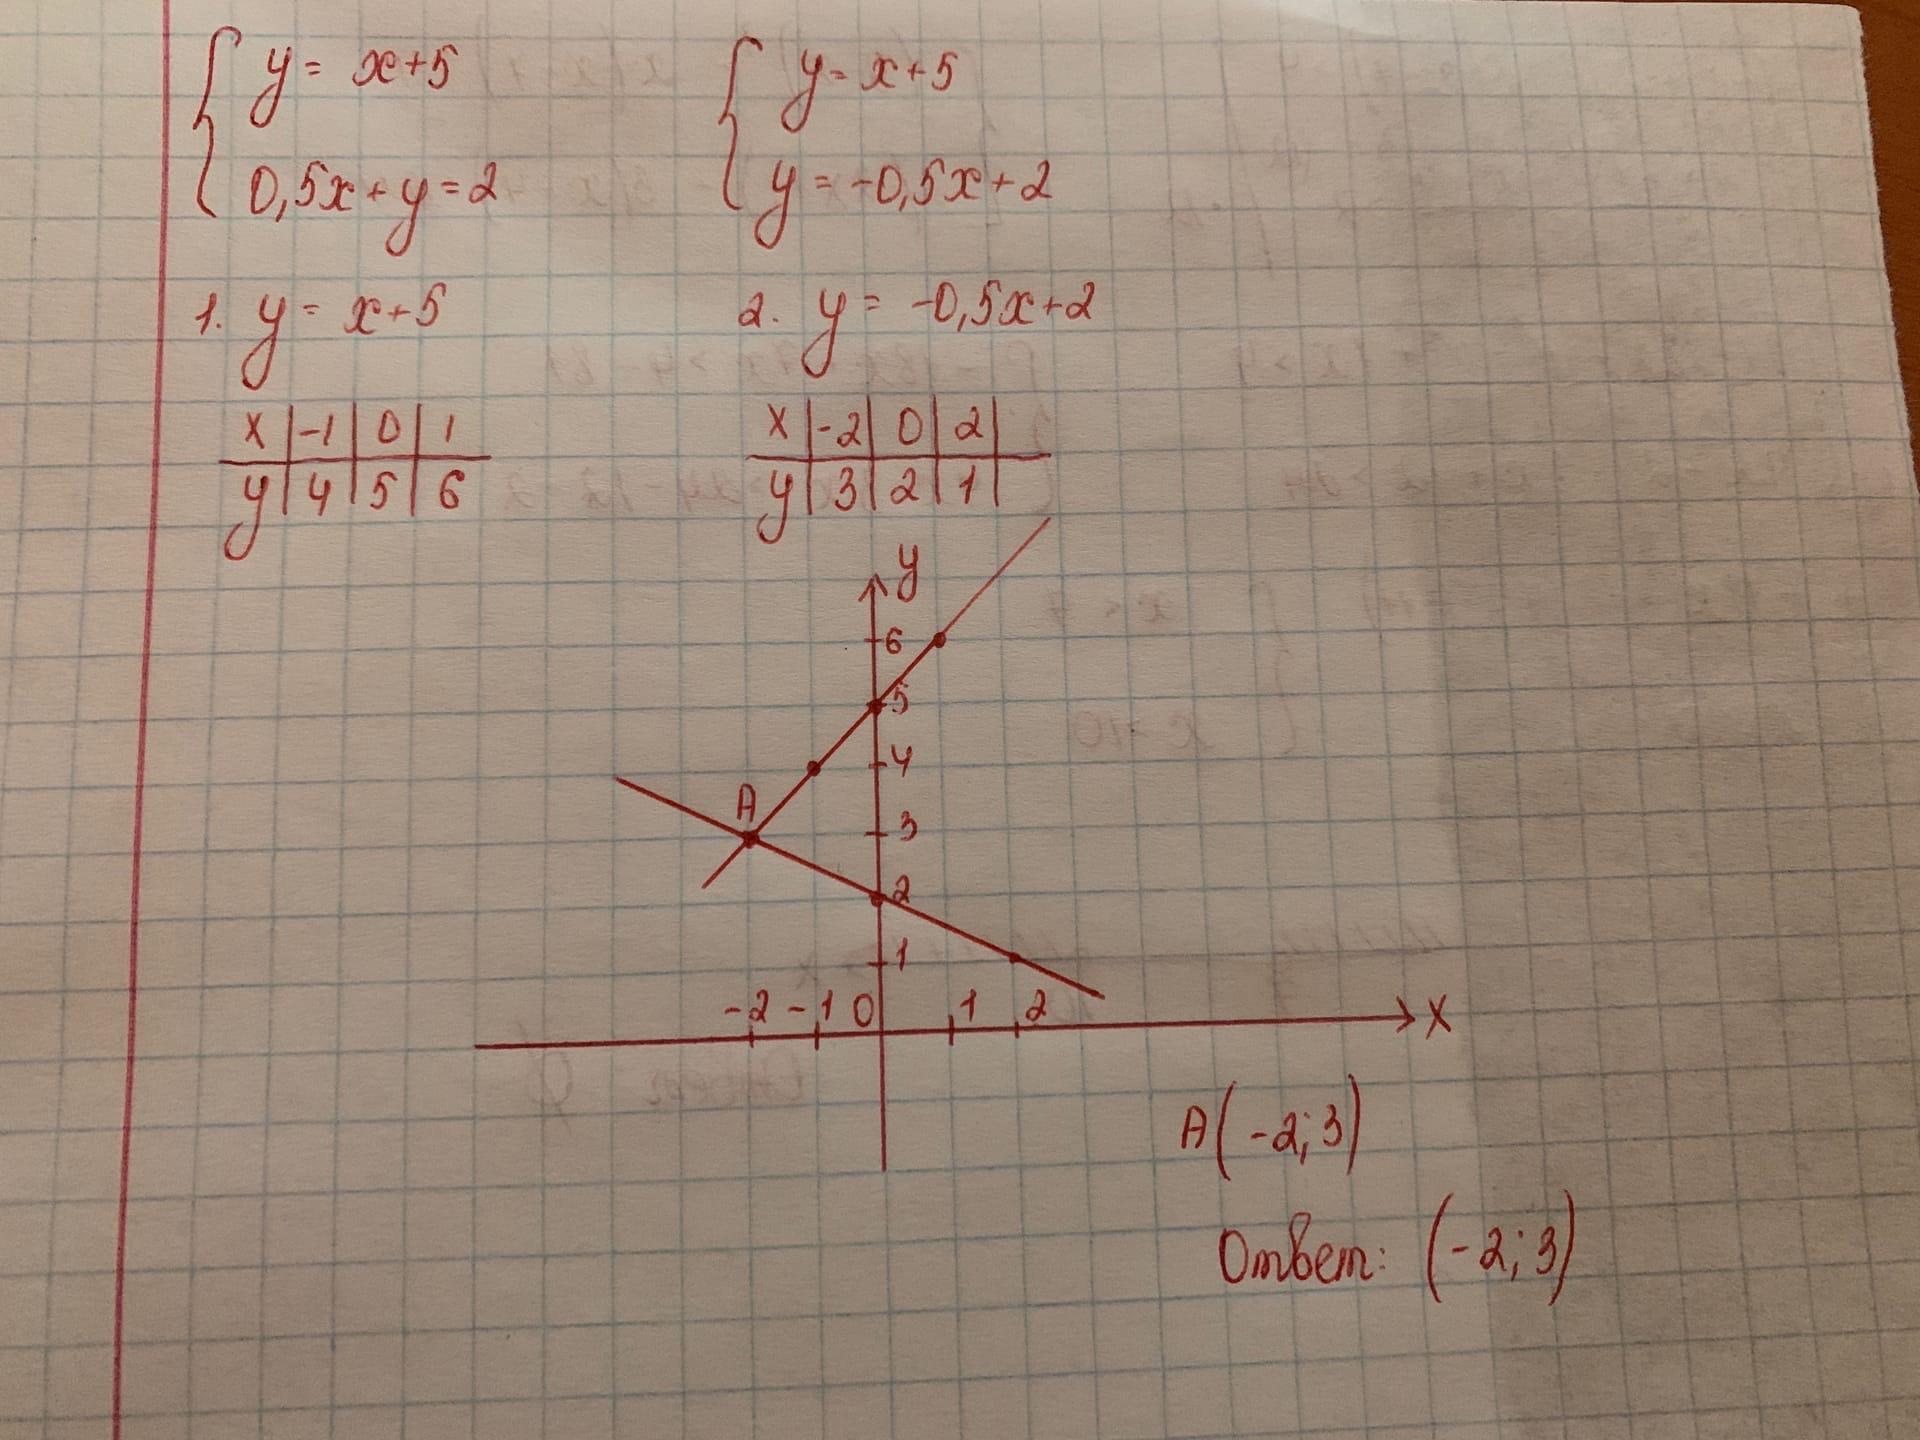 y = x+5 y = x+5
0,5x + y = 2 y = -0,5x + 2
1. y = x+5 2. y = -0,5x+2
x -1 0 1 x -2 0 2
y 4 5 6 y 3 2 1
y
6
5
4
A
3
2
1
-2 -1 0 1 2 x
A(-2; 3)
Ответ: (-2; 3)